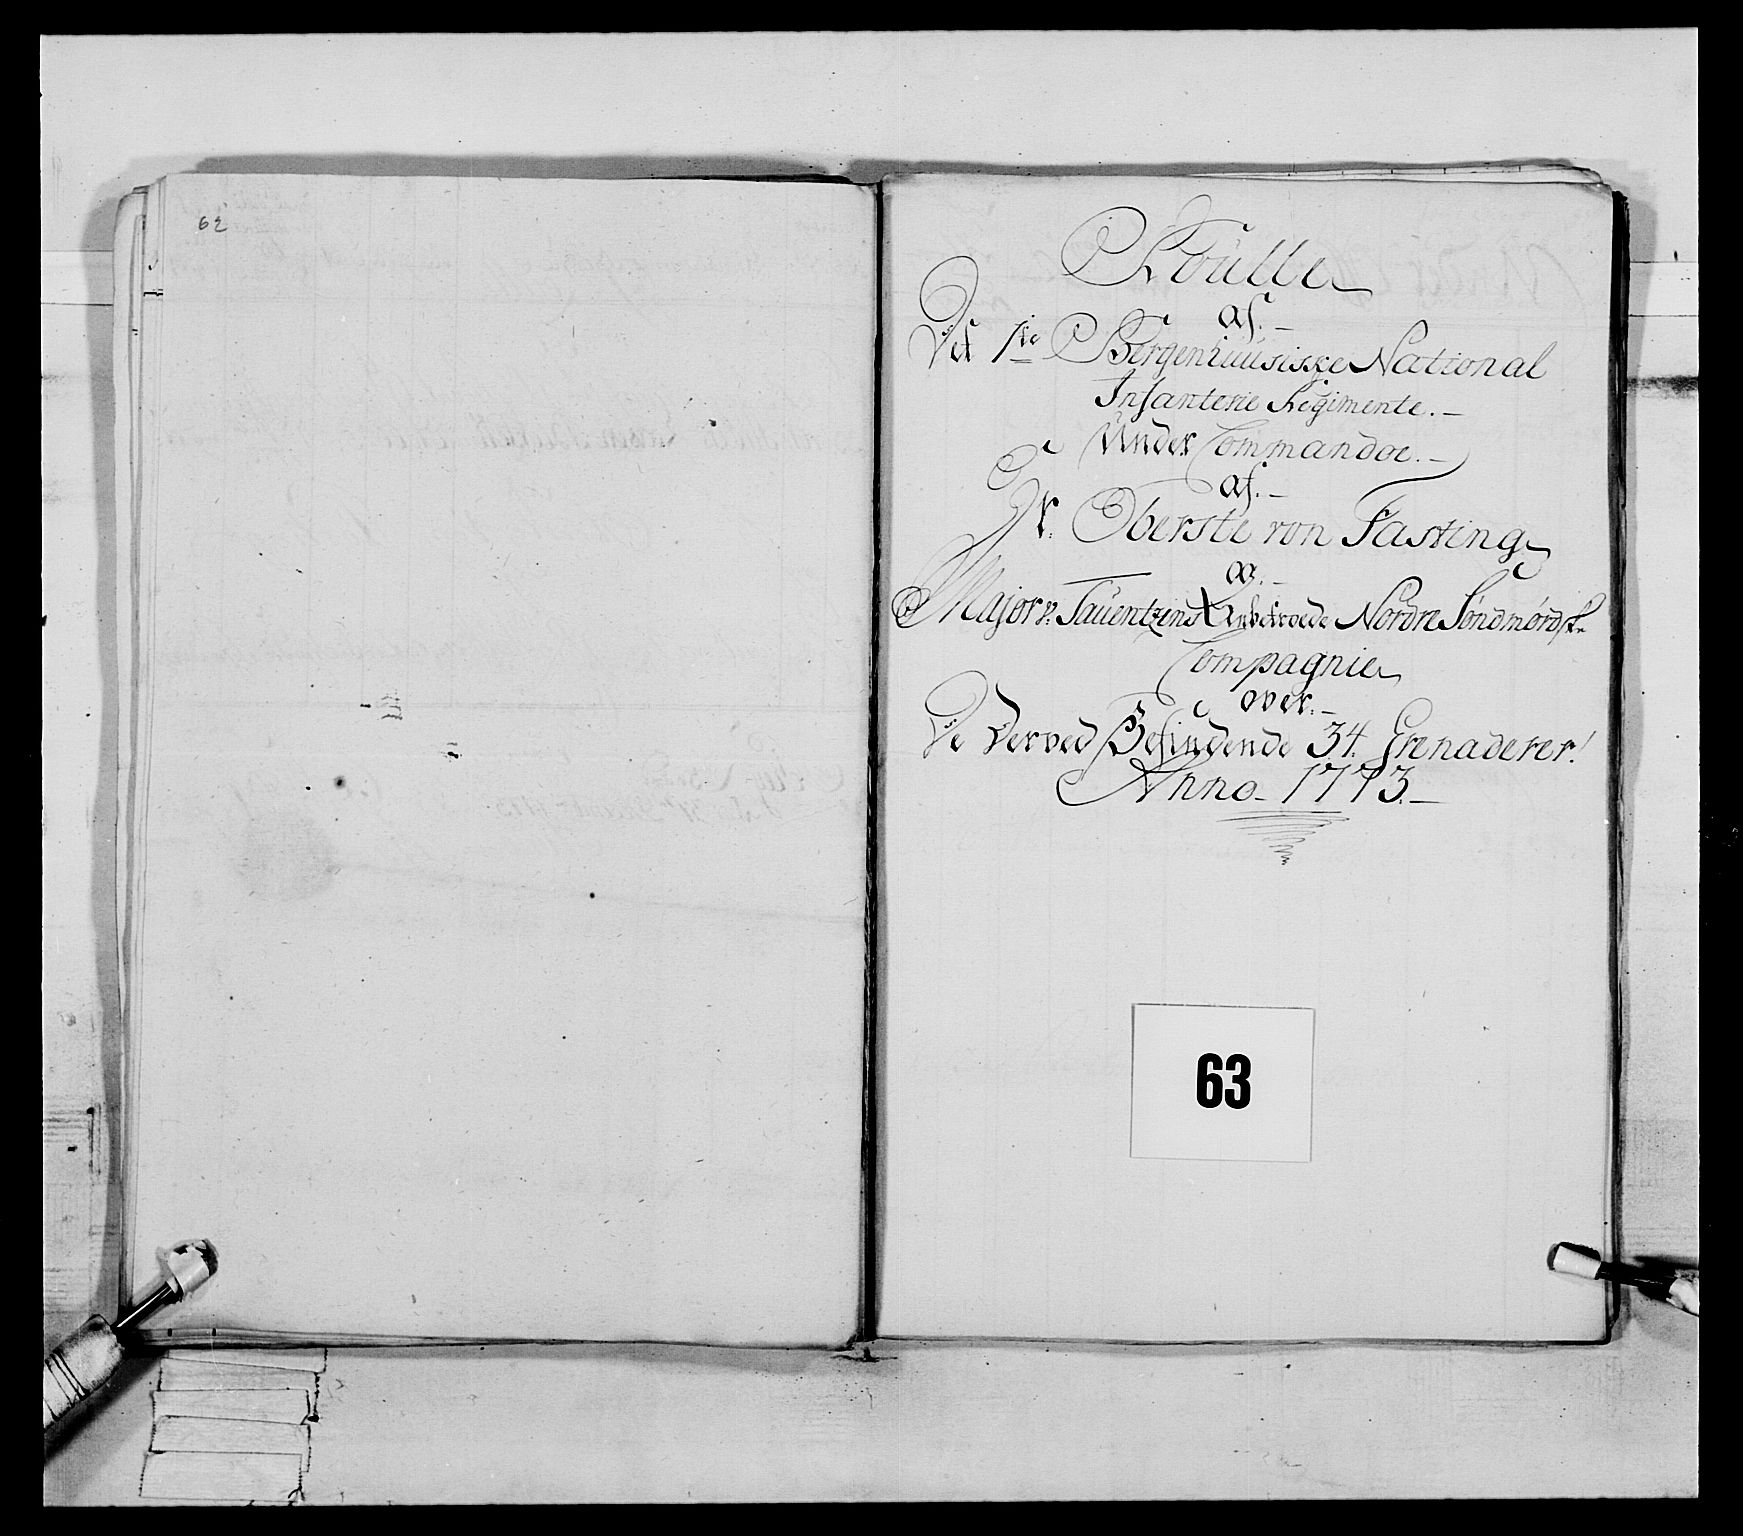 62
Roulle
af.
Det 1te Bergenhuusiske National
Infanterie Regimente.
Under Commandoe.
af.
Hr. Oberste von Fasting
og.
Major v: Tauentzins Anbetroede Nordre Søndmørdske
Compagnie
over.
De Derved Befindende 34. Grenaderer!
Anno 1773.
63